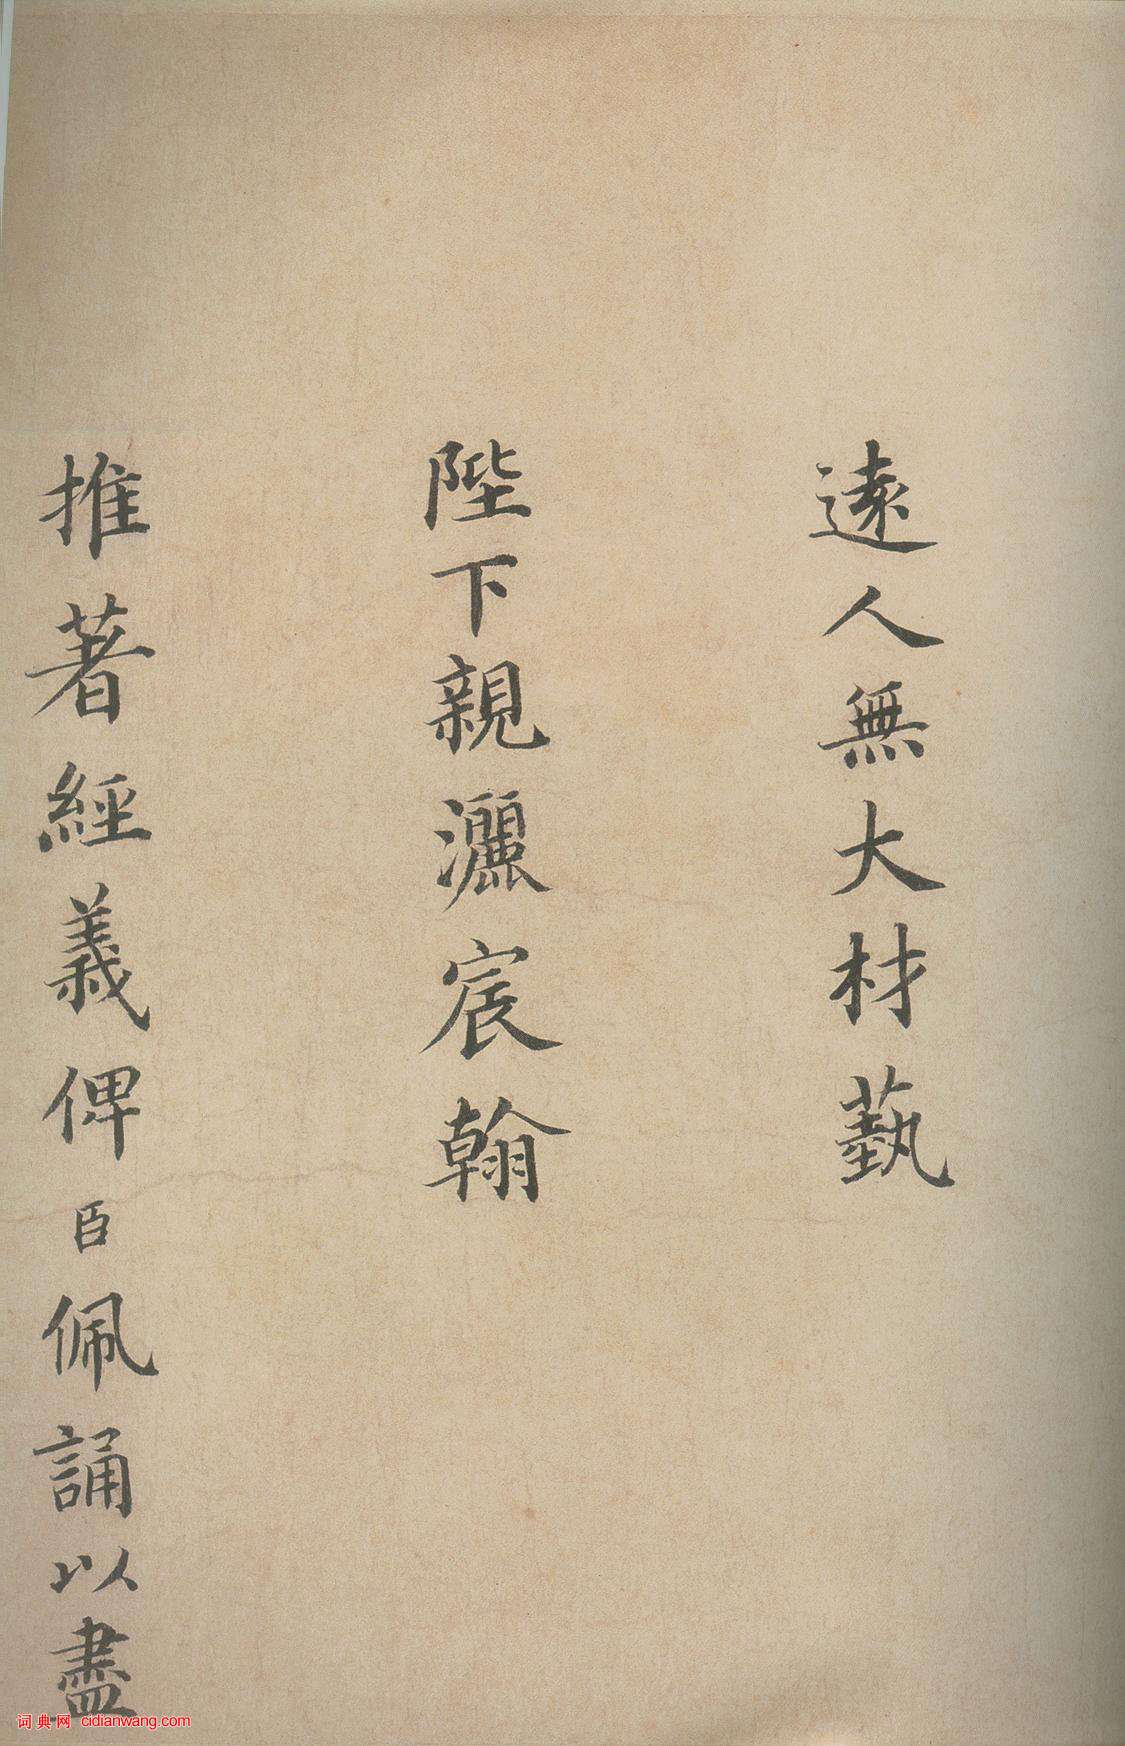 遠人無大材藝
陛下親灑宸翰
推著經義俾臣佩誦以盡
词典网 cidianwang.com